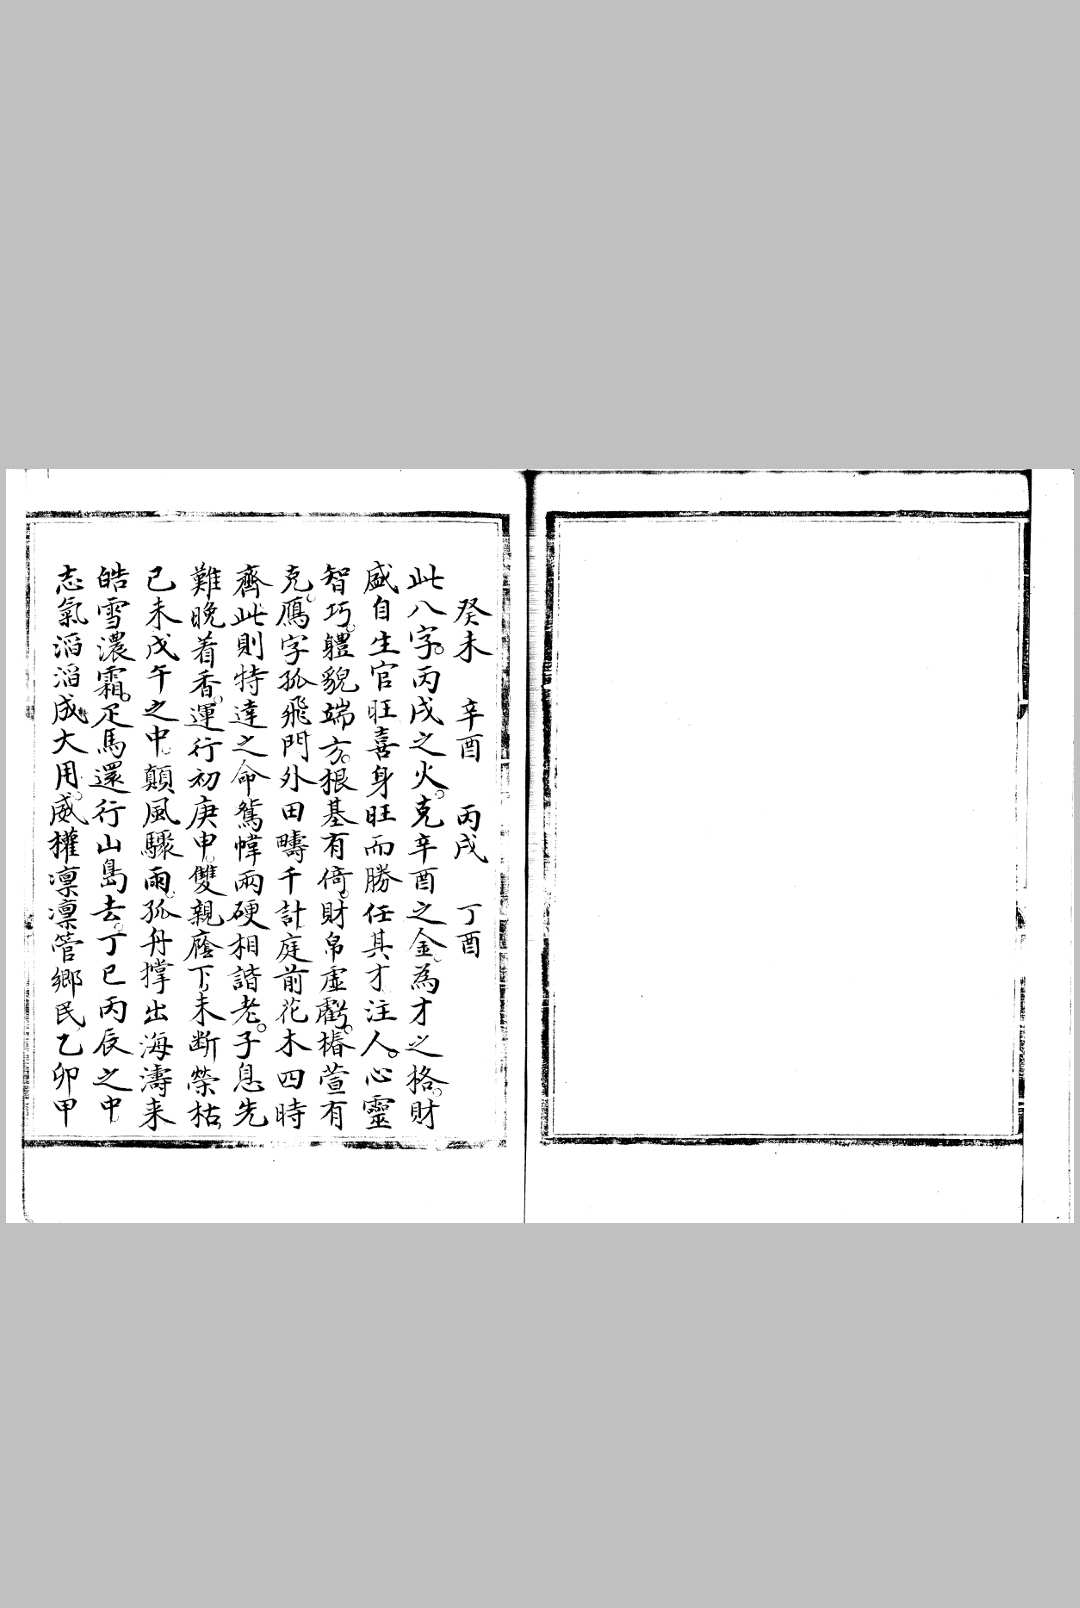 癸未　辛酉　丙戌　丁酉
此八字。丙戌之火。克辛酉之金。為才之格。財
盛自生官旺喜身旺而勝任其才注人。心靈
智巧。軆貌端方。根基有倚。財帛虛虧。椿萱有
克。鴈字孤飛門外田疇千計庭前花木四時
齊此則特達之命鴛幃兩硬相諧老。子息先
難晚着香。運行初庚申。雙親廕下。未断榮枯。
己未戊午之中。顛風驟雨。孤舟撑出海濤来
皓雪濃霜。疋馬還行山島去。丁巳丙辰之中。
志氣滔滔成大用。威權凛凛管鄉民乙卯甲